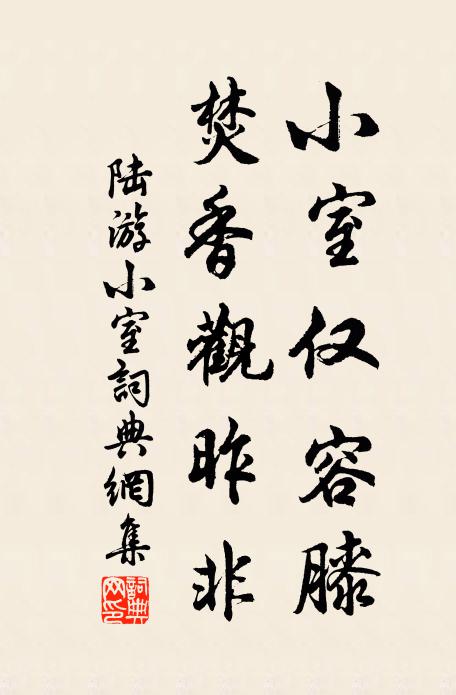 小室仅容膝
焚香觀昨非
陆游小室詞典網集
詞典网印